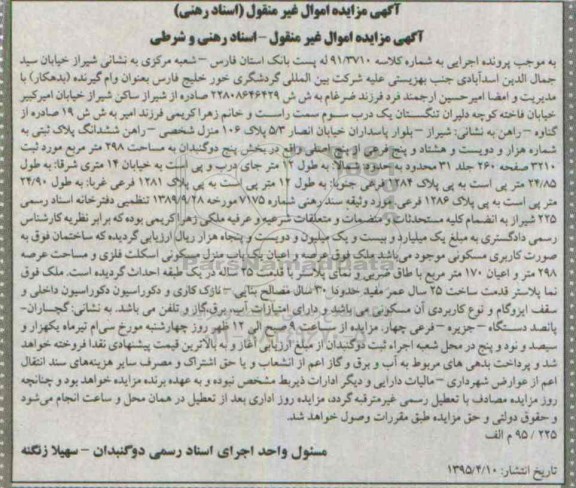 آگهی مزایده اموال غیر منقول (اسناد رهنی)
آگهی مزایده اموال غیر منقول -اسناد رهنی و شرطی
به موجب پرونده اجرایی به شماره کلاسه ۹۱/۳۷۱۰ له پست بانک استان فارس – شعبه مرکزی به نشانی شیراز خیابان سید
جمال الدین اسدآبادی جنب بهزیستی علیه شرکت بین المللی گردشگری خور خلیج فارس بعنوان وام گیرنده (بدهکار) با
مدیریت و امضا امیرحسین ارجمند فرد فرزند ضرغام به ش ش ۲۲۸۰۸۶۴۶۴۲۹ صادره از شیراز ساکن شیراز خیابان امیرکبیر
خیابان فاخته کوچه دلیران تنگستان یک درب سوم سمت راست و خانم زهرا کریمی فرزند امیر به ش ش ۱۹ صادره از
گناوه – راهن به نشانی: شیراز – بلوار پاسداران خیابان انصار ۵/۳ پلاک ۱۰۶ منزل شخصی – راهن ششدانگ پلاک ثبتی به
شماره هزار و دویست و هشتاد و پنج فرعی از پنج اصلی واقع در بخش پنج دوگنبدان به مساحت ۲۹۸ متر مربع مورد ثبت
۳۲۱۰ صفحه ۲۶۰ جلد ۳۱ محدود به حدود شمالا: به طول ۱۲ متر جای درب و پی است به خیابان ۱۴ متری شرقا: به طول
۲۴/۸۵ متر پی است به پی پلاک ۱۲۸۴ فرعی جنوبا: به طول ۱۲ متر پی است به پی پلاک ۱۲۸۱ فرعی غربا: به طول ۲۴/۹۰
متر پی است به پی پلاک ۱۲۸۶ فرعی. مورد وثیقه سند رهنی شماره ۷۱۷۵ مورخه ۱۳۸۹/۹/۲۸ تنظیمی دفترخانه اسناد رسمی
۲۲۵ شیراز به انضمام کلیه مستحدثات و منضمات و متعلقات شرعیه و عرفیه ملکی زهرا کریمی بوده که برابر نظریه کارشناس
رسمی دادگستری به مبلغ یک میلیارد و بیست و یک میلیون و دویست و پنجاه هزار ریال ارزیابی گردیده که ساختمان فوق به
صورت کاربری مسکونی موجود می‌باشد ملک فوق عرصه و اعیان یک باب منزل مسکونی اسکلت فلزی و مساحت عرصه
۲۹۸ متر و اعیان ۱۷۰ متر مربع با طاق ضربی و نمای پلاستر با قدمت ۲۵ سال در یک طبقه احداث گردیده است. ملک فوق
نما پلاستر قدمت ساخت ۲۵ سال عمر مفید حدودا ۳۰ سال مصالح بنایی – نازک کاری و دکوراسیون دکوراسیون داخلی و
سقف ایزوگام و نوع کاربردی آن مسکونی می باشد و دارای امتیازات آب، برق، گاز و تلفن می باشد. به نشانی: گچساران-
پانصد دستگاه – جزیره – فرعی چهار. مزایده از ساعت ۹ صبح الی ۱۲ ظهر روز چهارشنبه مورخ سی‌ام تیرماه یکهزار و
سیصد و نود و پنج در محل شعبه اجراء ثبت دوگنبدان از مبلغ ارزیابی آغاز و به بالاترین قیمت پیشنهادی نقدا فروخته خواهد
شد و پرداخت بدهی های مربوط به آب و برق و گاز اعم از انشعاب و یا حق اشتراک و مصرف سایر هزینه‌های سند انتقال
اعم از عوارض شهرداری – مالیات دارایی و دیگر ادارات ذیربط مشخص نبوده و به عهده برنده مزایده خواهد بود و چنانچه
روز مزایده مصادف با تعطیل رسمی غیرمترقبه گردد، مزایده روز اداری بعد از تعطیل در همان محل و ساعت انجام می‌شود
و حقوق دولتی و حق مزایده طبق مقررات وصول خواهد شد.
۲۲۵ / ۹۵ م الف
مسئول واحد اجرای اسناد رسمی دوگنبدان – سهیلا زنگنه
تاریخ انتشار: ۱۳۹۵/۴/۱۰